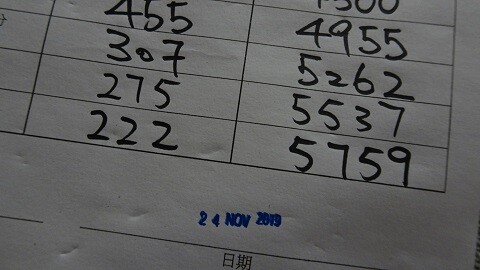 455 4500
307 4955
275 5262
222 5537
5759
24 NOV 2019
日期